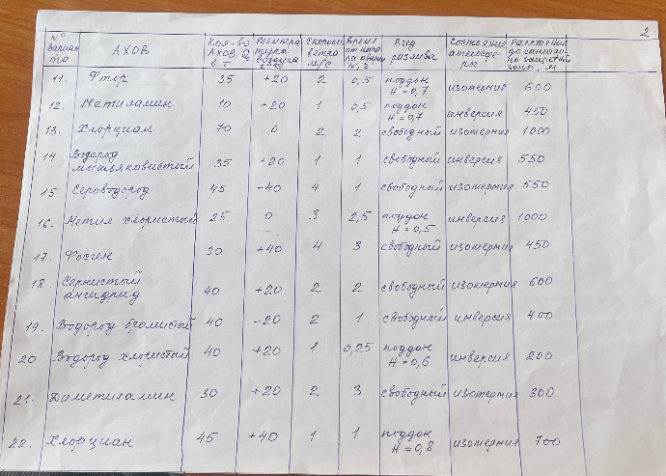 2
№ вариан та | АХОВ | Кол-во АХОВ Q₀ в Т | Темпера тура воздуха | Скорость ветра м/с | Время от нача ла аварии N, г | Вид разлива | Состояние атмосфе- ры | Расстояние до зоны, м
11. Фтор 35 +20 2 0,5 поддон H=0,7 изотермия 600
12. Метиламин 10 +20 1 0,5 поддон H=0,7 инверсия 450
13. Хлорциан 70 0 2 2 свободный изотермия 1000
14 Водород мышьяковистый 35 +20 1 1 свободный инверсия 550
15 Сероводород 45 -40 4 1 свободный изотермия 550
16. Метил хлористый 25 0 3 2,5 поддон H=0,5 инверсия 1000
17. Фосген 30 +40 4 3 свободный изотермия 450
18. Сернистый ангидрид 40 +20 2 2 свободный изотермия 600
19. Водород бромистый 40 -20 2 1 свободный инверсия 400
20 Водород хлористый 40 +20 1 0,25 поддон H=0,6 инверсия 200
21. Диметиламин 30 +20 2 3 свободный изотермия 300
22. Хлорциан 45 +40 1 1 поддон H=0,8 изотермия 700